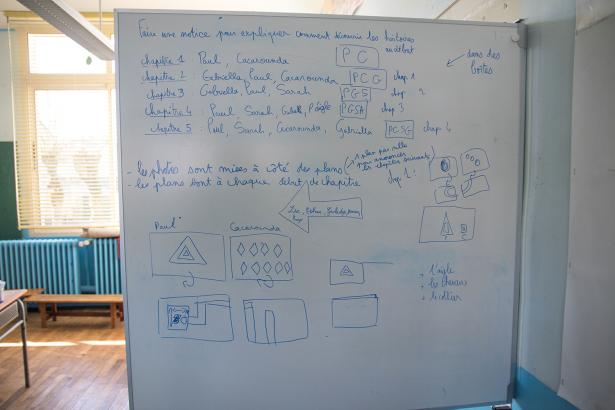 Faire une notice pour expliquer comment découvrir des histoires
au début
dans des boîtes
chapitre 1 : Paul, Cacarounda PC
chapitre 2 : Gabriella, Paul, Cacarounda PCG chap 1
chapitre 3 : Gabriella, Paul, Sarah PGS chap 2
chapitre 4 : Paul, Sarah, Gabriella, l'aigle PGSA chap 3
chapitre 5 : Paul, Sarah, Cacarounda, Gabriella PCSG chap 4
- les photos sont mises à côté des plans
(1 plan par salle pour annoncer les chapitres suivants)
- les plans sont à chaque début de chapitre
chap 1 :
Paul
Cacarounda
P
+ l'aigle
+ les
+ le collier